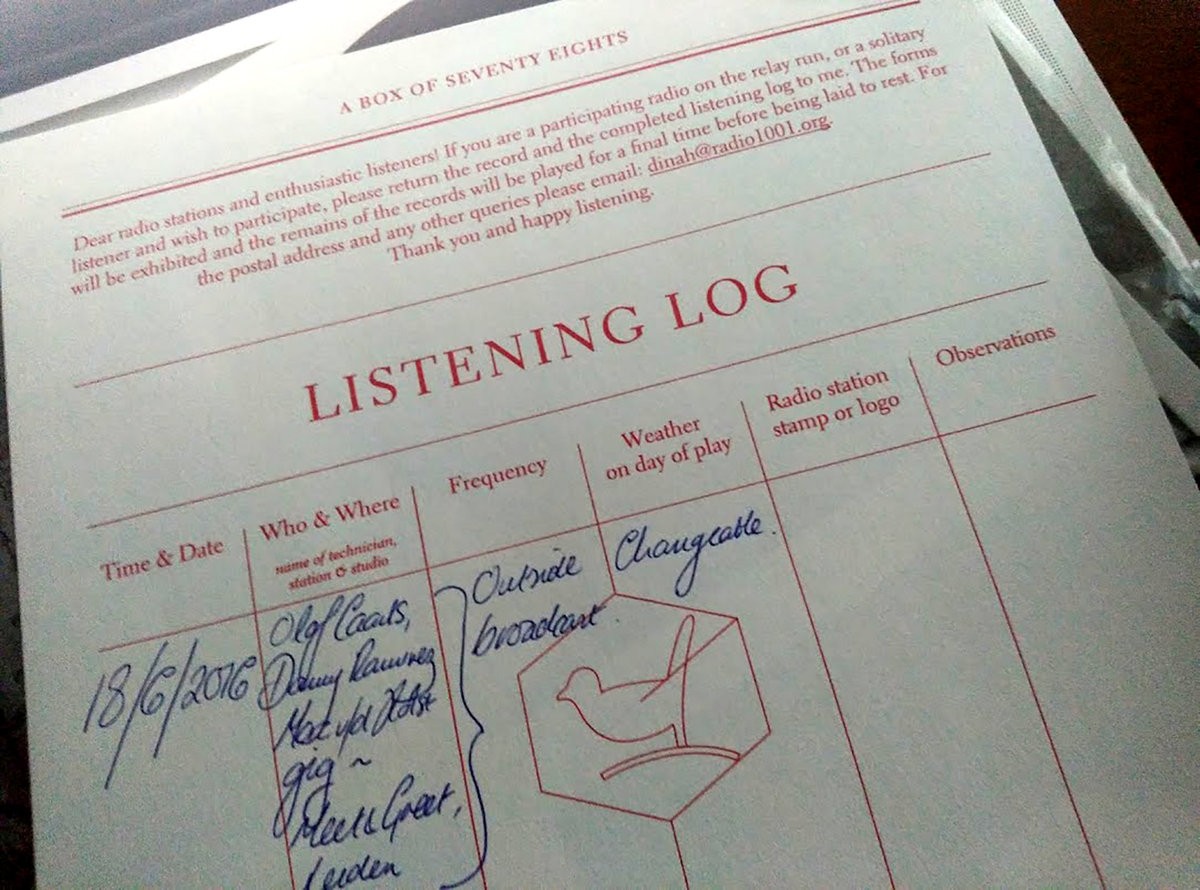 A BOX OF SEVENTY EIGHTS
Dear radio stations and enthusiastic listeners! If you are a participating radio on the relay run, or a solitary
listener and wish to participate, please return the record and the completed listening log to me. The forms
will be exhibited and the remains of the records will be played for a final time before being laid to rest. For
the postal address and any other queries please email: dinah@radio1001.org.
Thank you and happy listening.
LISTENING LOG
Time & Date
Who & Where
name of technician,
station & studio
Frequency
Weather
on day of play
Radio station
stamp or logo
Observations
18/6/2016
Olof
Danny
gig ~
Meet & Greet,
Outside
broadcast.
Changeable.